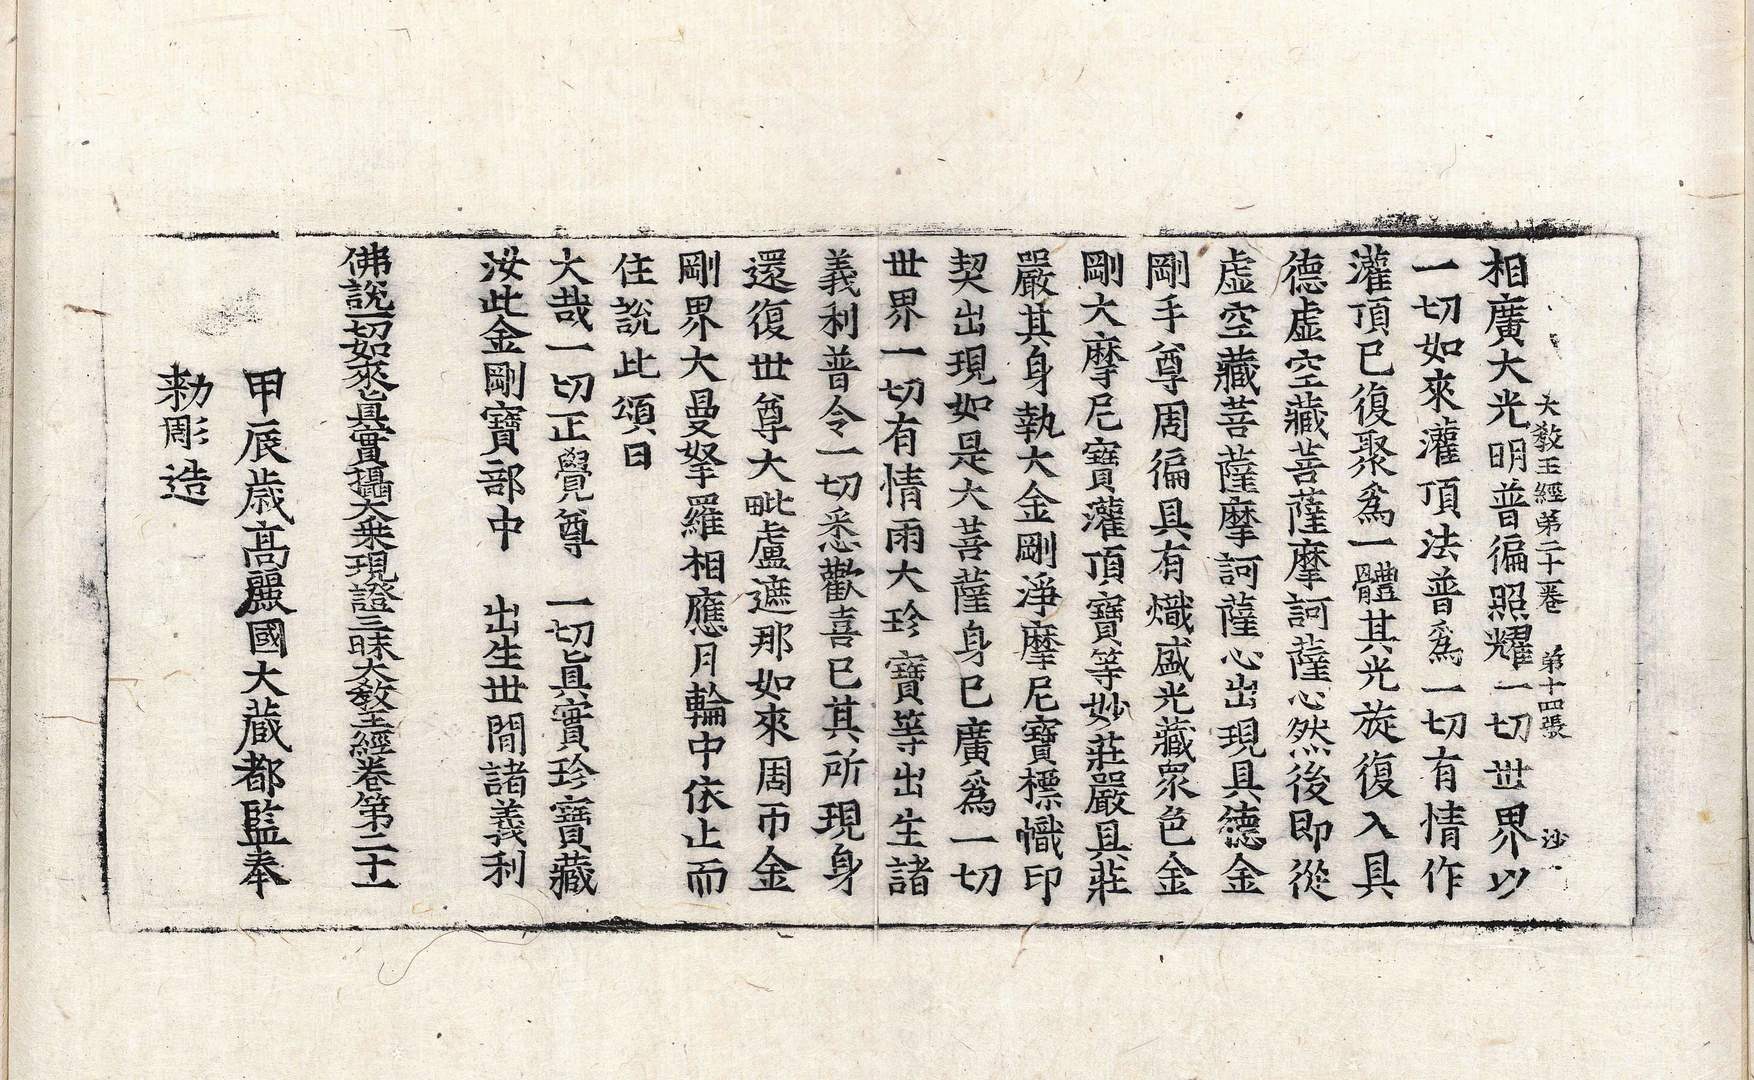 大教王經第二十一卷 第十四張 沙
相廣大光明普徧照耀一切世界以
一切如來灌頂法普爲一切有情作
灌頂已復聚爲一體其光旋復入具
德虛空藏菩薩摩訶薩心然後即從
虛空藏菩薩摩訶薩心出現具德金
剛手尊周徧具有熾盛光藏衆色金
剛大摩尼寶灌頂寶等妙莊嚴具莊
嚴其身執大金剛淨摩尼寶標幟印
契出現如是大菩薩身已廣爲一切
世界一切有情雨大珍寶等出生諸
義利普令一切悉歡喜已其所現身
還復世尊大毗盧遮那如來周帀金
剛界大曼拏羅相應月輪中依止而
住說此頌曰
大哉一切正覺尊 一切眞實珍寶藏
汝此金剛寶部中 出生世間諸義利
佛說一切如來眞實攝大乘現證三昧大教王經卷第二十一
甲辰歲高麗國大藏都監奉
勑彫造